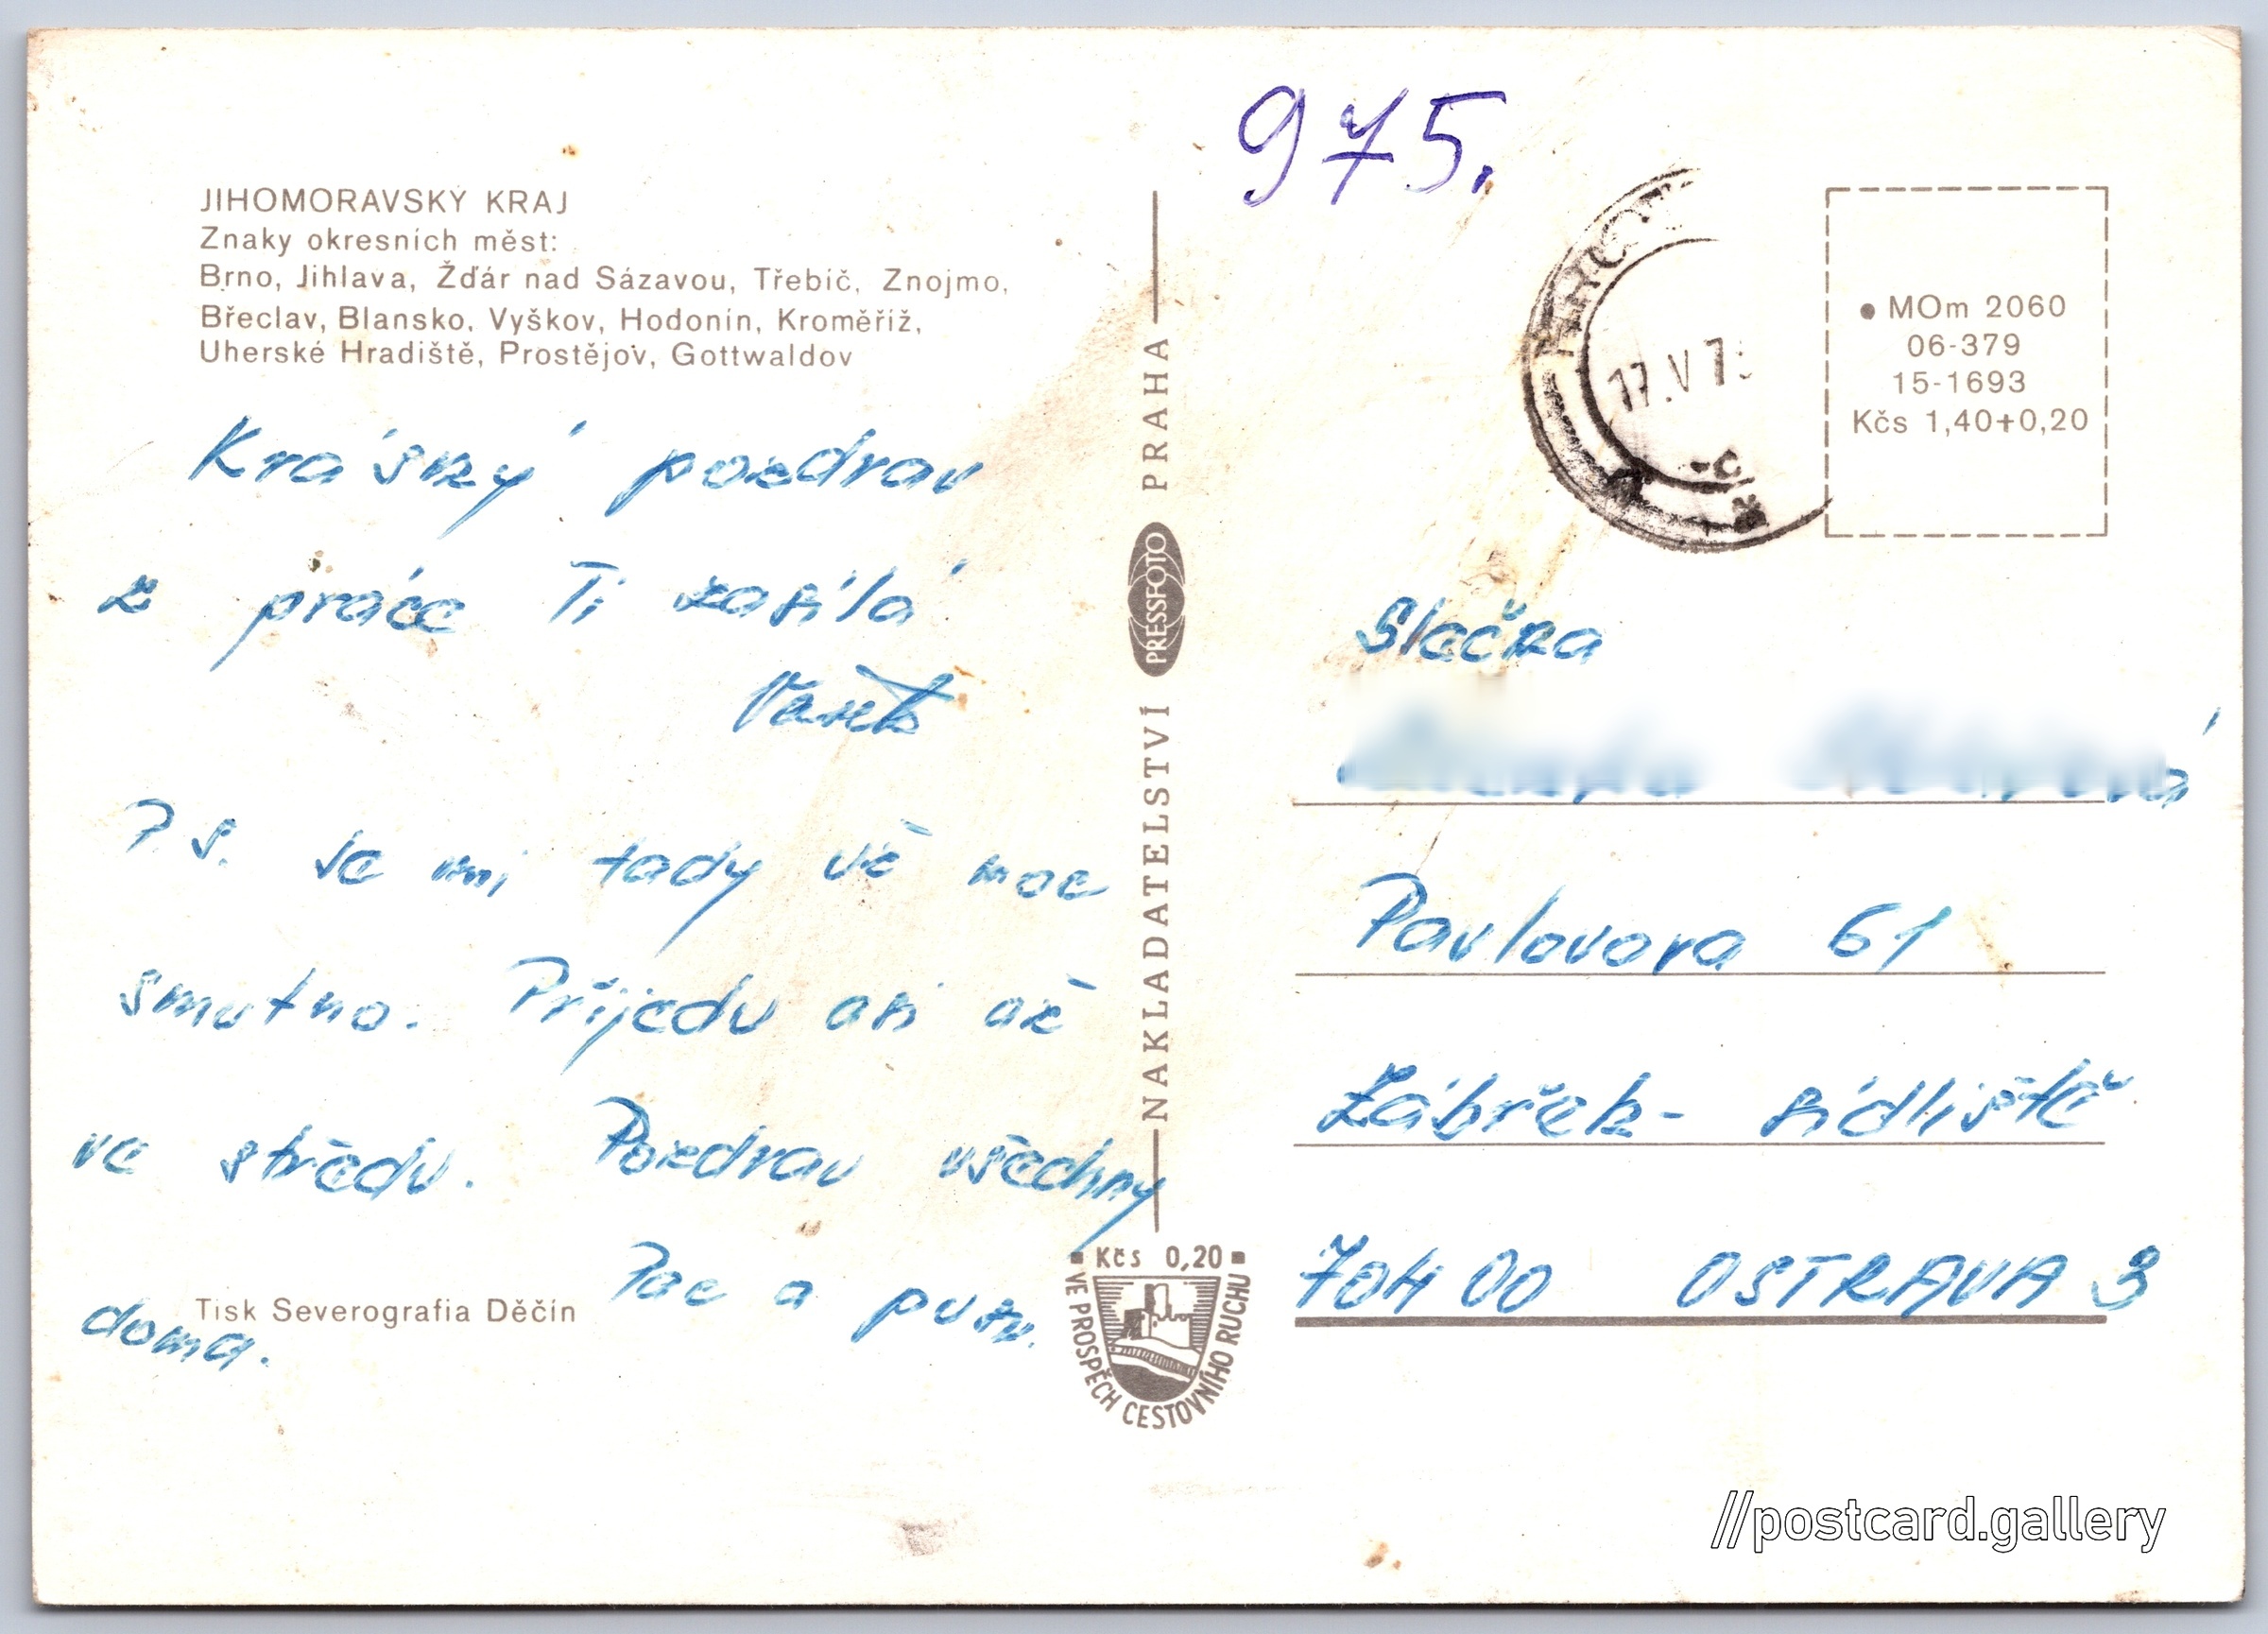 975.
JIHOMORAVSKÝ KRAJ
Znaky okresních měst:
Brno, Jihlava, Žďár nad Sázavou, Třebíč, Znojmo,
Břeclav, Blansko, Vyškov, Hodonín, Kroměříž,
Uherské Hradiště, Prostějov, Gottwaldov
Krásný pozdrav
z práce Ti zasílá
Vašek
PS. Je mi tady už moc
smutno. Příjedu asi až
ve středu. Pozdrav všechny
doma.
Pac a pusu.
Tisk Severografia Děčín
NAKLADATELSTVÍ PRESSFOTO PRAHA
Kčs 0,20
VE PROSPĚCH CESTOVNÍHO RUCHU
17.V.7
MOm 2060
06-379
15-1693
Kčs 1,40+0,20
Slečna
Pavlovova 61
Zábřeh- sídliště
704 00 OSTRAVA 3
//postcard.gallery